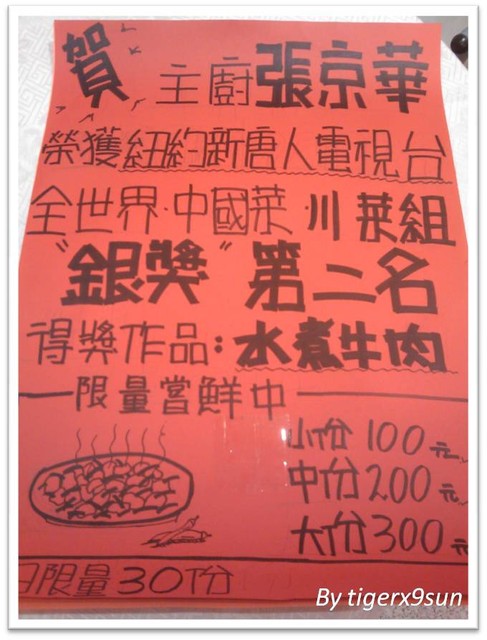 賀 主廚張京華
榮獲紐約新唐人電視台
全世界·中國菜·川菜組
"銀獎"第二名
得獎作品:水煮牛肉
限量嘗鮮中
小份100元
中份200元
大份300元
日限量30份
By tigerx9sun